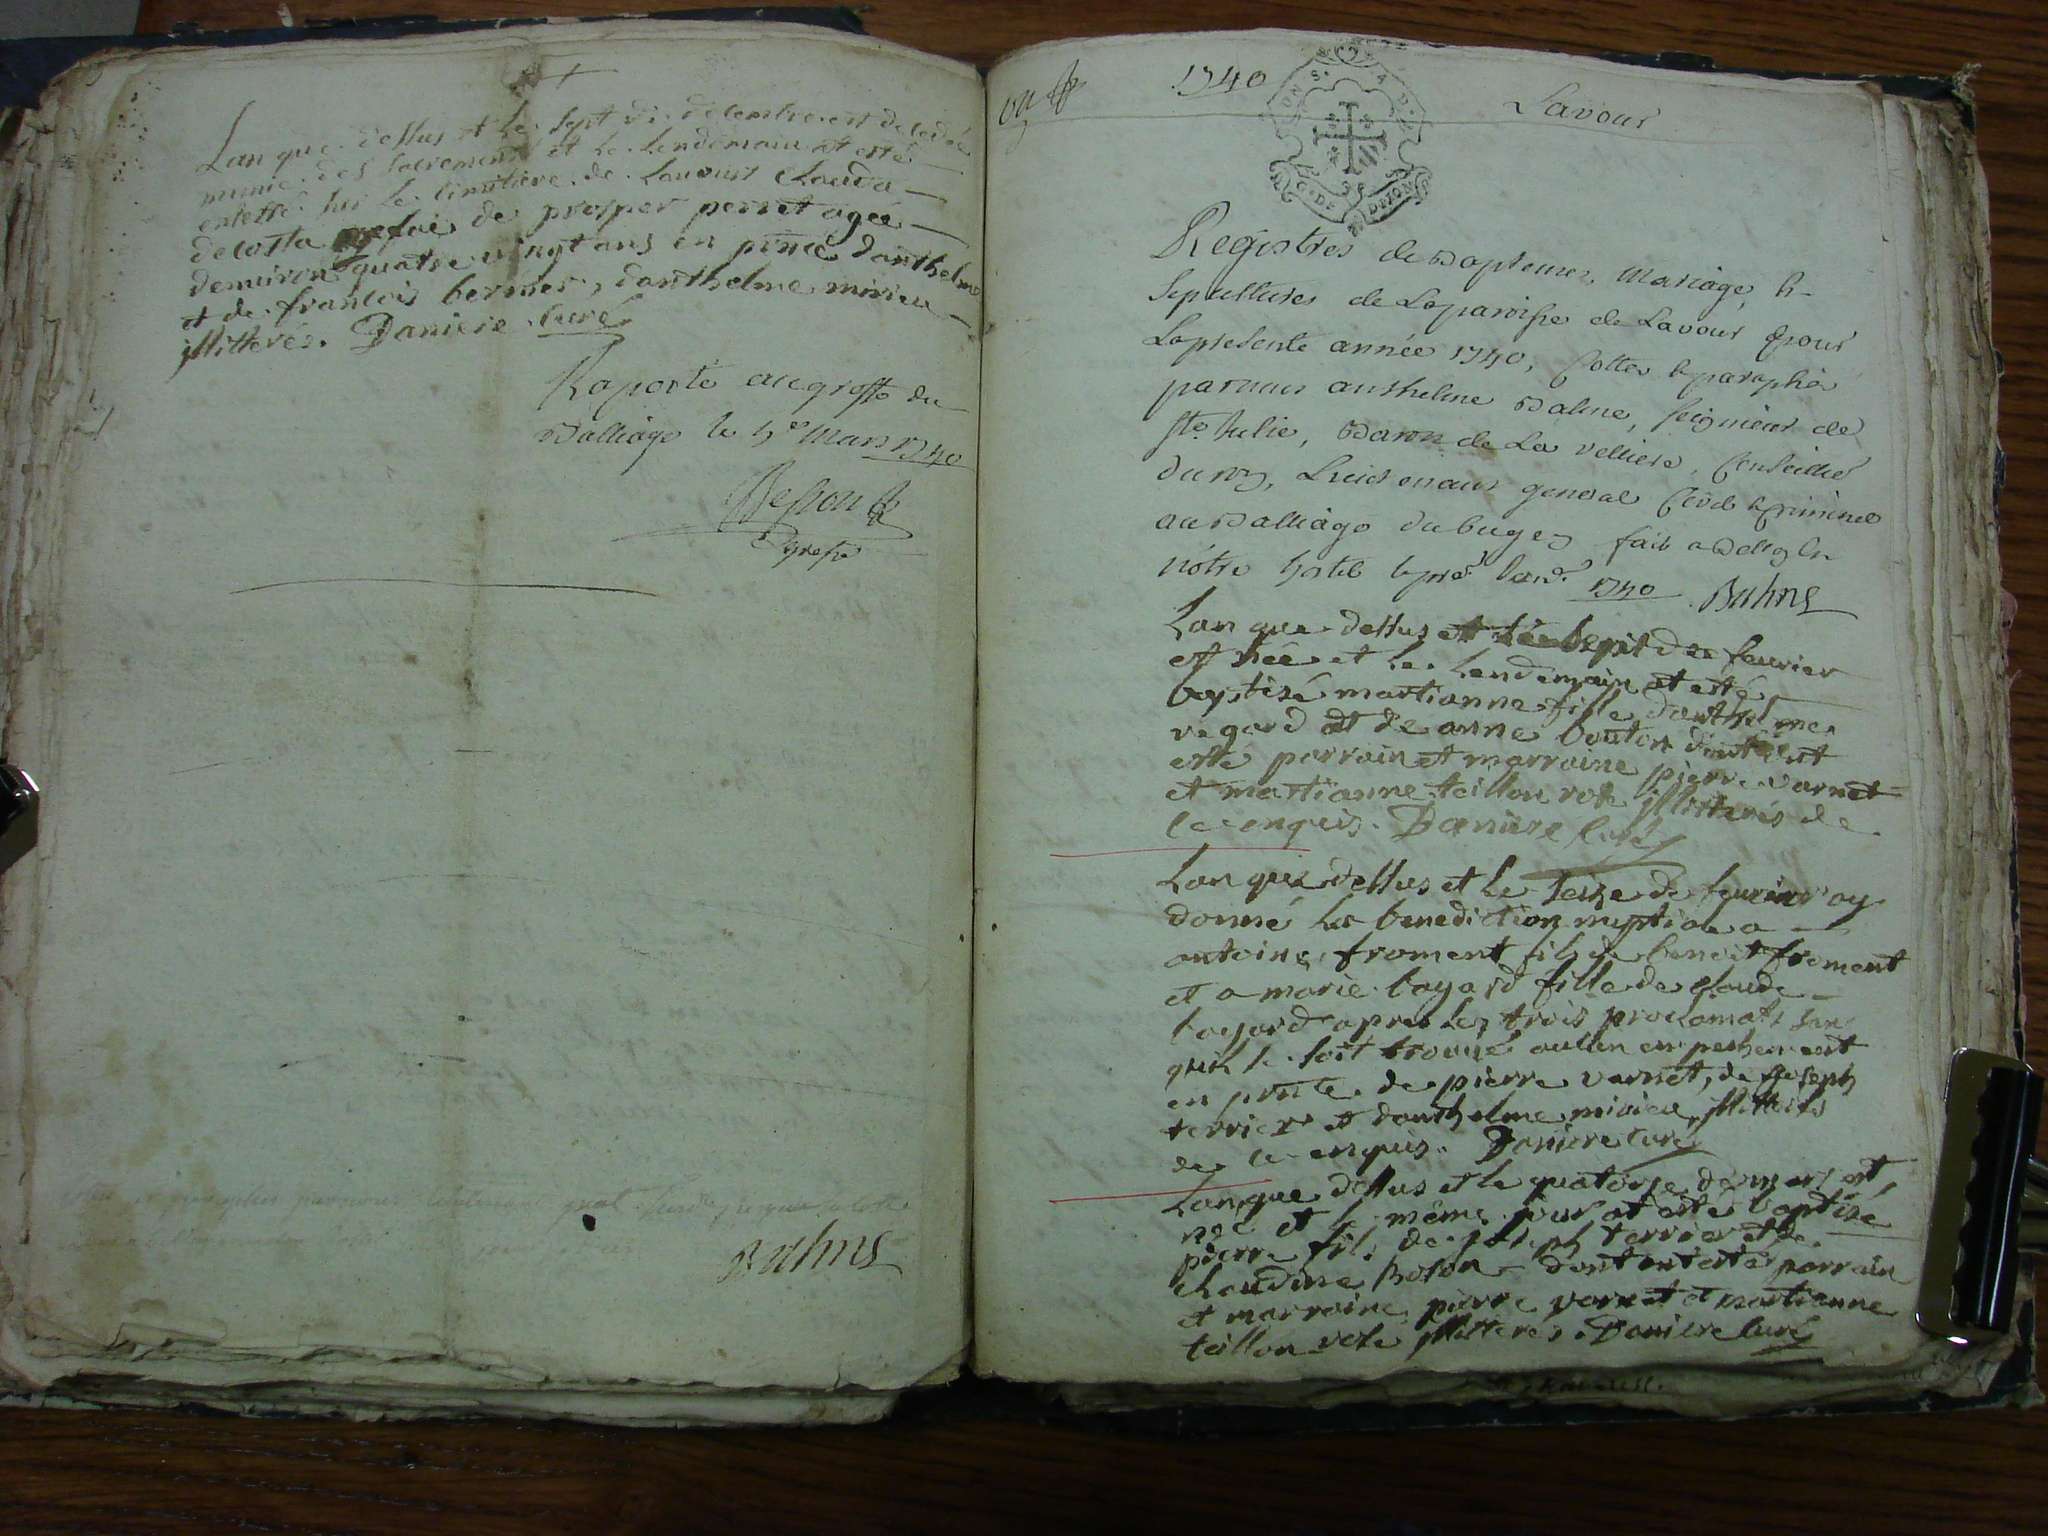 Lan que dessus et le sept de decembre est decedée
munie des sacrements et le lendemain at esté
enterré sur le cimitiere de Lavours Clauda
decosta de prosper perret agée
denviron quatre vingt ans en pnce danthelme
et de francois bernier, danthelme mivieu
illitterés. Daniere curé
Raporté au greffe du
Balliage le 4e Mars 1740
greffe
Buhne
1740
Lavour
Registres de Baptemes, Mariage, &
sepultures de La paroisse de Lavour pour
La presente année 1740, Cottés & paraphés
par nous anthelme Balme, seigneur de
Ste Julie, Baron de La velliere, Conseiller
du roy, Lieutenant general Civil & Criminel
au Balliage du bugey fait a Belley En
nôtre hotel le pre Janv. 1740
Lan que dessus et le sept de feuvrier
est née et le lendemain at esté
baptisé martianne fille danthelme
regard et de anne bouton dont ont
esté parrain et marraine pierre varnet
et martianne teillon vefe illitterés de
ce enquis. Daniere Curé
Lan que dessus et le seize de feuvrier ay
donné la benediction nuptiale a
antoine froment fils de benoit froment
et a marie bayard fille de Claude
bayard apres les trois proclamats sans
quil se soit trouvé aucun empeshement
en pnce de pierre varnet, de joseph
terrier et danthelme mivieu illitterés
de ce enquis. Daniere curé
Lan que dessus et le quatorze de mars est
née et le même jour at esté baptisé
pierre fils de joseph terrier et de
Claudine dont ont esté parrain
et marraine pierre varnet et martianne
teillon vefe illitterés. Daniere Curé